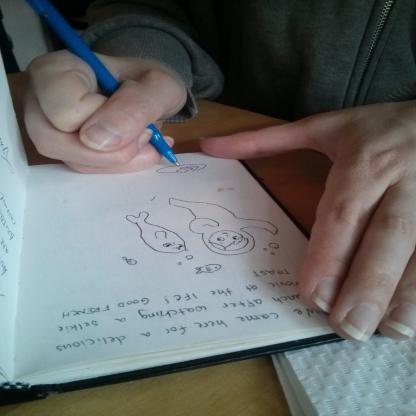 We came here for a delicious
brunch after watching a selkie
movie at the IFC! GOOD FRENCH
TOAST